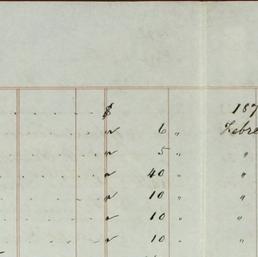 $ 187
" 6 " Febre
" 5 " "
" 40 " "
" 10 " "
" 10 " "
" 10 " "